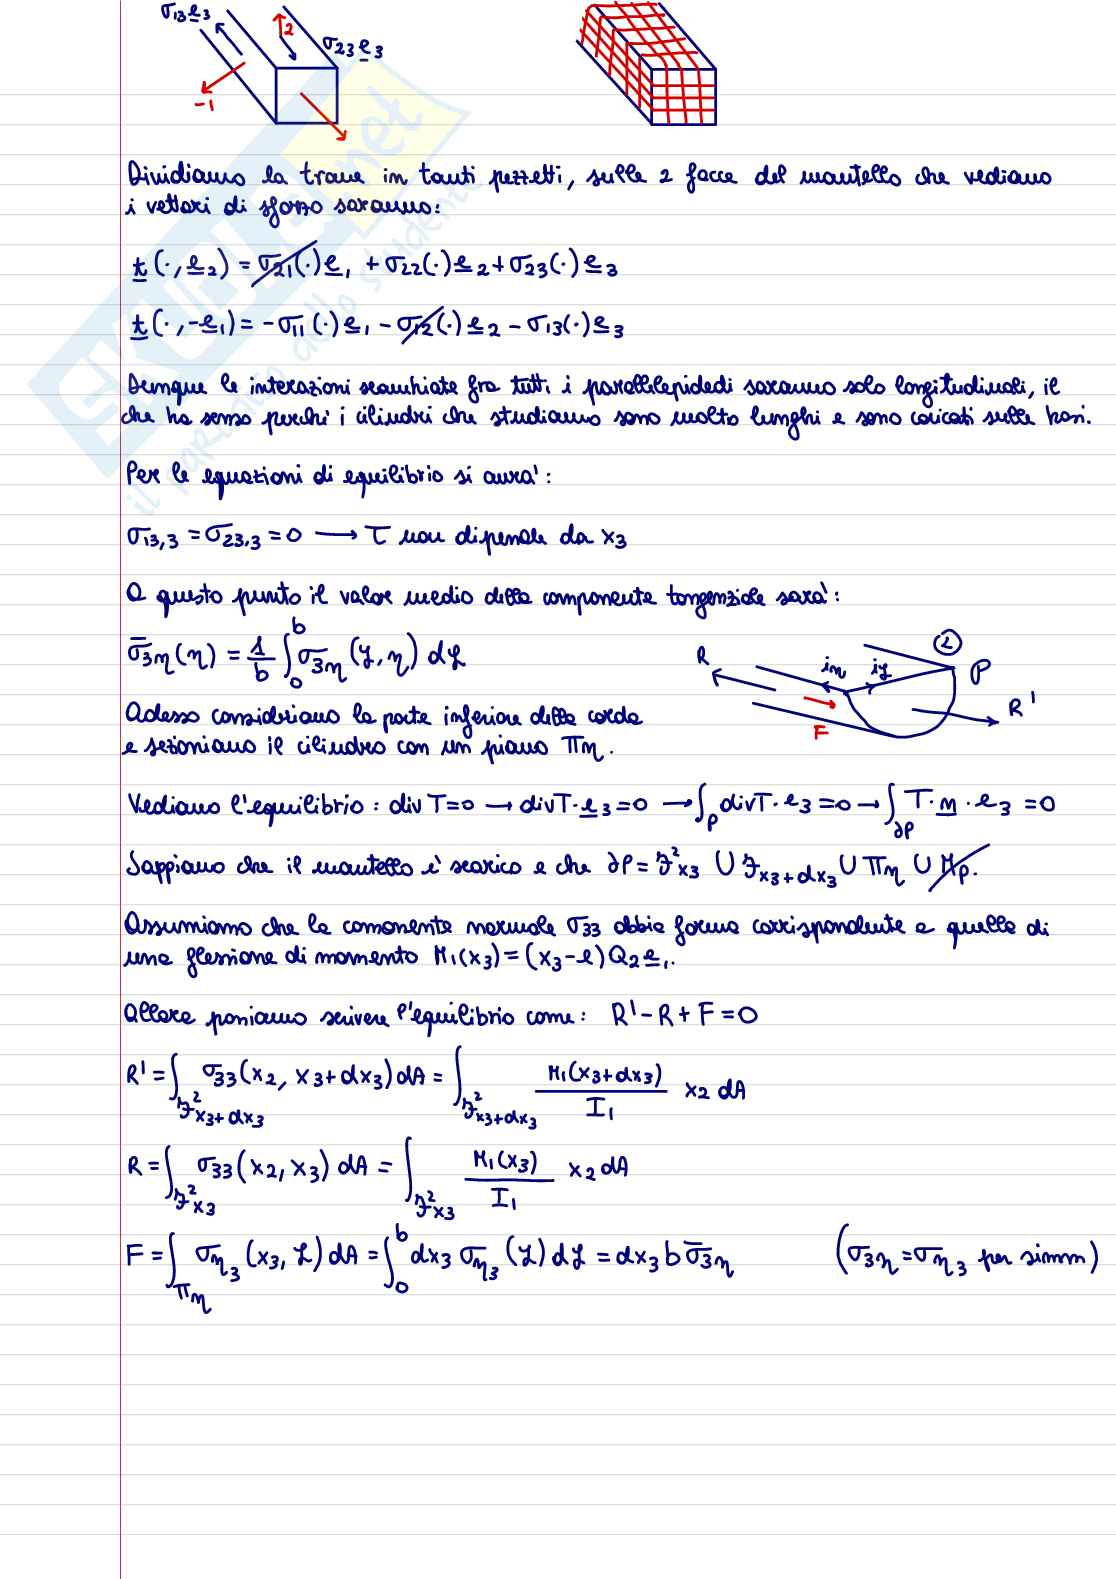 σ13 e3
2
σ23 e3
-1
Dividiamo la trave in tanti pezzetti, sulle 2 facce del mantello che vediamo
i vettori di sforzo saranno:
t(·, e2) = σ21(·)e1 + σ22(·)e2 + σ23(·)e3
t(·, -e1) = -σ11(·)e1 - σ12(·)e2 - σ13(·)e3
Dunque le interazioni scambiate fra tutti i parallelepidedi saranno solo longitudinali, il
che ha senso perchè i cilindri che studiamo sono molto lunghi e sono caricati sulle basi.
Per le equazioni di equilibrio si avra':
σ13,3 = σ23,3 = 0 → τ non dipende da x3
A questo punto il valor medio della componente tangenziale sara':
σ̄3η(η) = 1/b ∫0^b σ3η(ξ, η) dξ
R iη iξ 2 P
F R'
Adesso consideriamo la parte inferiore della corda
e sezioniamo il cilindro con un piano πη.
Vediamo l'equilibrio: div T=0 → div T·e3=0 → ∫P div T·e3=0 → ∫∂P T·n·e3 = 0
Sappiamo che il mantello e' scarico e che ∂P = F²x3 ∪ Fx3+dx3 ∪ πη ∪ MP.
Assumiamo che la comonente normale σ33 abbia forma corrispondente a quella di
una flessione di momento M1(x3) = (x3-l)Q2e1.
Allora possiamo scrivere l'equilibrio come: R' - R + F = 0
R' = ∫F²x3+dx3 σ33(x2, x3+dx3)dA = ∫F²x3+dx3 M1(x3+dx3)/I1 x2 dA
R = ∫F²x3 σ33(x2, x3) dA = ∫F²x3 M1(x3)/I1 x2 dA
F = ∫πη ση3(x3, ξ) dA = ∫0^b dx3 ση3(ξ) dξ = dx3 b σ̄3η (σ3η = ση3 per simm)
SKUOLA.net
il paradiso dello studente